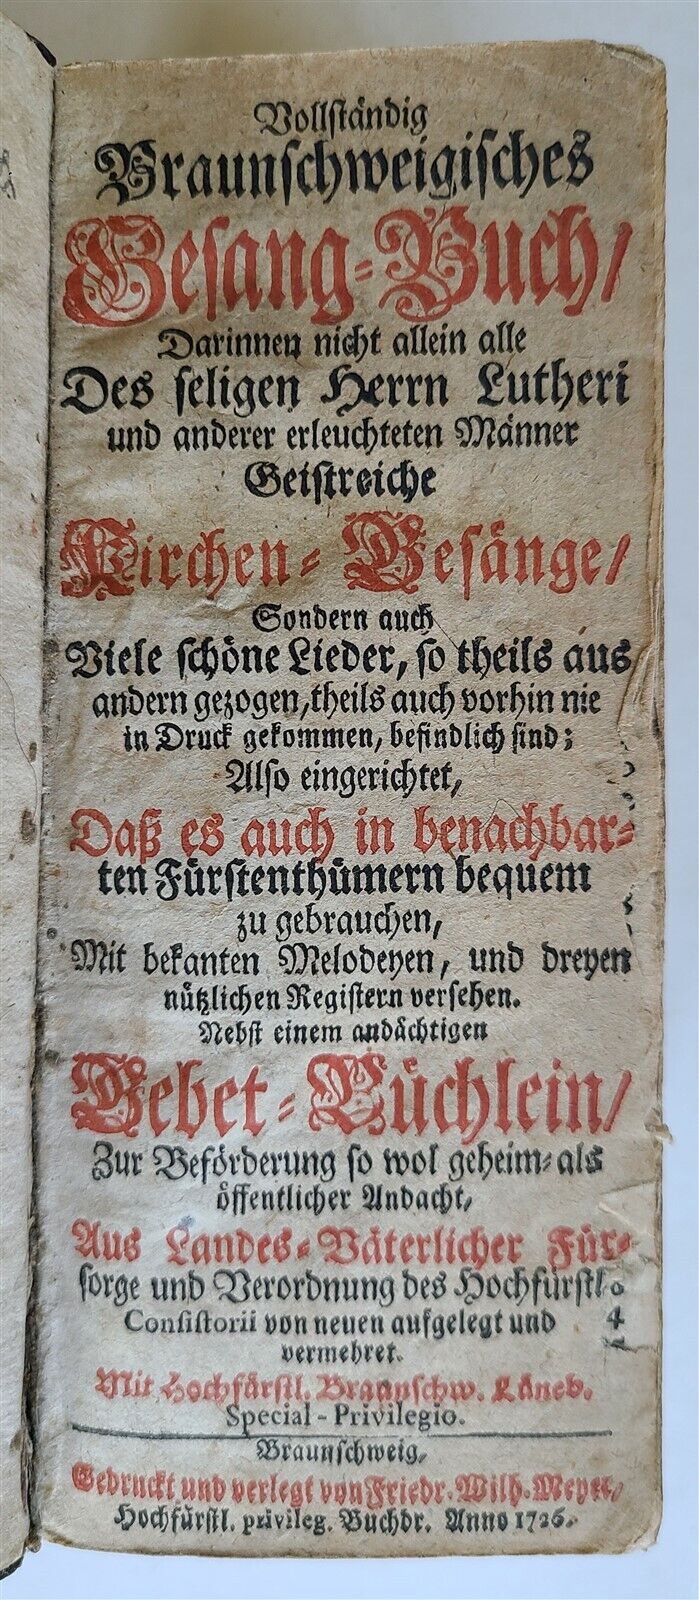 Vollständig
Braunschweigisches
Gesang-Buch/
Darinnen nicht allein alle
Des seligen Herrn Lutheri
und anderer erleuchteten Männer
Geistreiche
Kirchen-Gesänge/
Sondern auch
Viele schöne Lieder, so theils aus
andern gezogen, theils auch vorhin nie
in Druck gekommen, befindlich sind;
Also eingerichtet,
Daß es auch in benachbar-
ten Fürstenthümern bequem
zu gebrauchen,
Mit bekanten Melodeyen, und dreyen
nützlichen Registern versehen.
Nebst einem andächtigen
Gebet-Büchlein/
Zur Beförderung so wol geheim- als
öffentlicher Andacht,
Aus Landes-Väterlicher Für-
sorge und Verordnung des Hochfürstl.
Consistorii von neuen aufgelegt und
vermehret.
Mit Hochfürstl. Braunschw. Lüneb.
Special-Privilegio.
Braunschweig,
Gedruckt und verlegt von Friedr. Wilh. Meyer,
Hochfürstl. privileg. Buchdr. Anno 1726.